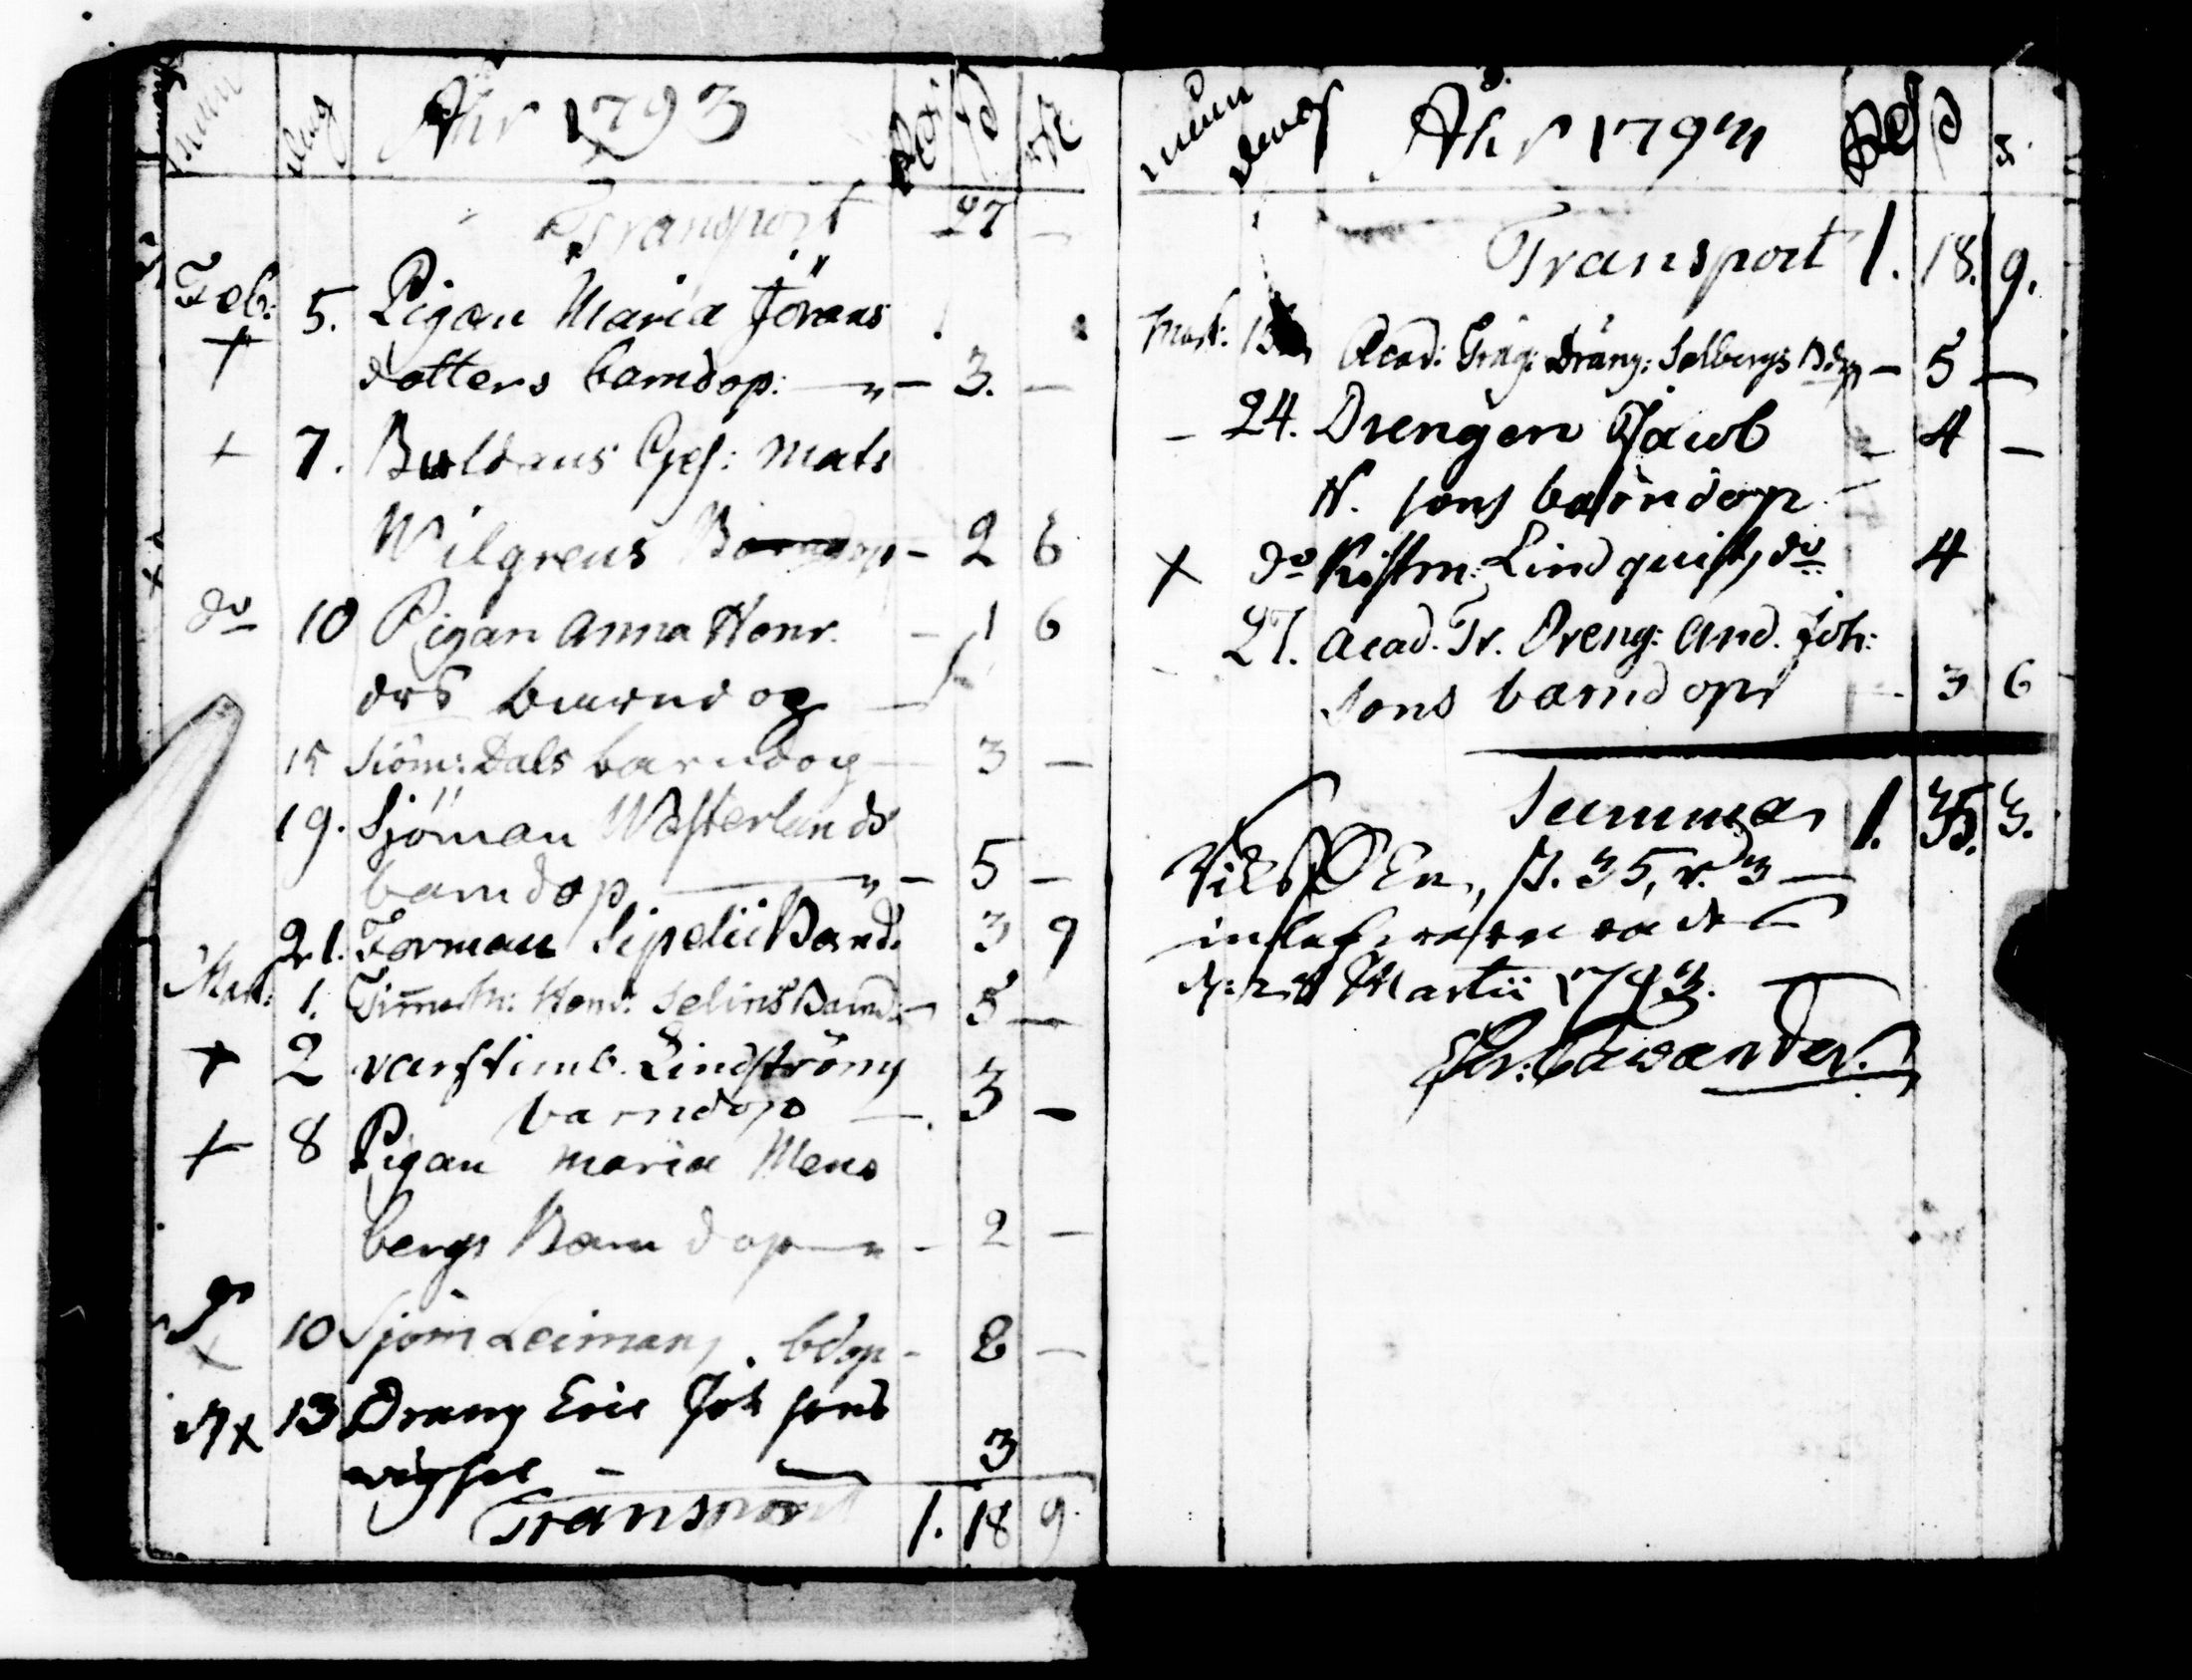 Åhr 1793
Transport 27 —
Feb: 5. Pigan Maria Jörans
+ dotters barndop: — 3. —
+ 7. Buldans Ges: Mats
Wilgrens Barndop — 2 6
do 10 Pigan Anna Henr. — 1 6
drs barndop
15 Siöm: Dals barndop — 3 —
19. Sjöman Wästerlunds
barndop — 5 —
21. Forman Sipelii Barnd. 3 9
Mart: 1. Timerm: Henr: Selins Barnd: — 5 —
+ 2 varfstimb. Lindströms
barndop — 3 —
+ 8 Pigan Maria Mens
bergs Barndop — 2 —
+ 10 Sjöm Leimans bdop — 8 —
+ 13 Dräng Eric Joh sons
wigsel — 3
Transport 1. 18 9.
Åhr 1793
Transport 1. 18. 9.
Mart: Acad: Träg: dräng: Solbergs Bdop — 5 —
— 24. Drengen Jacob — 4 —
N. sons barndop
+ do Lindquist do 4
27. Acad. Tr. Dreng: And. Joh:
sons barndop — 3 6
Summa 1. 35. 3.
35, r. 3 —
Martii 1793.